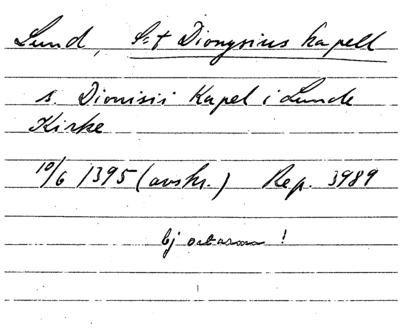 Lund, S:t Dionysius kapell
s. Dionisii Kapel i Lunde
Kirke
10/6 1395 (avskr.) Rep. 3989
Ej ortnamn!